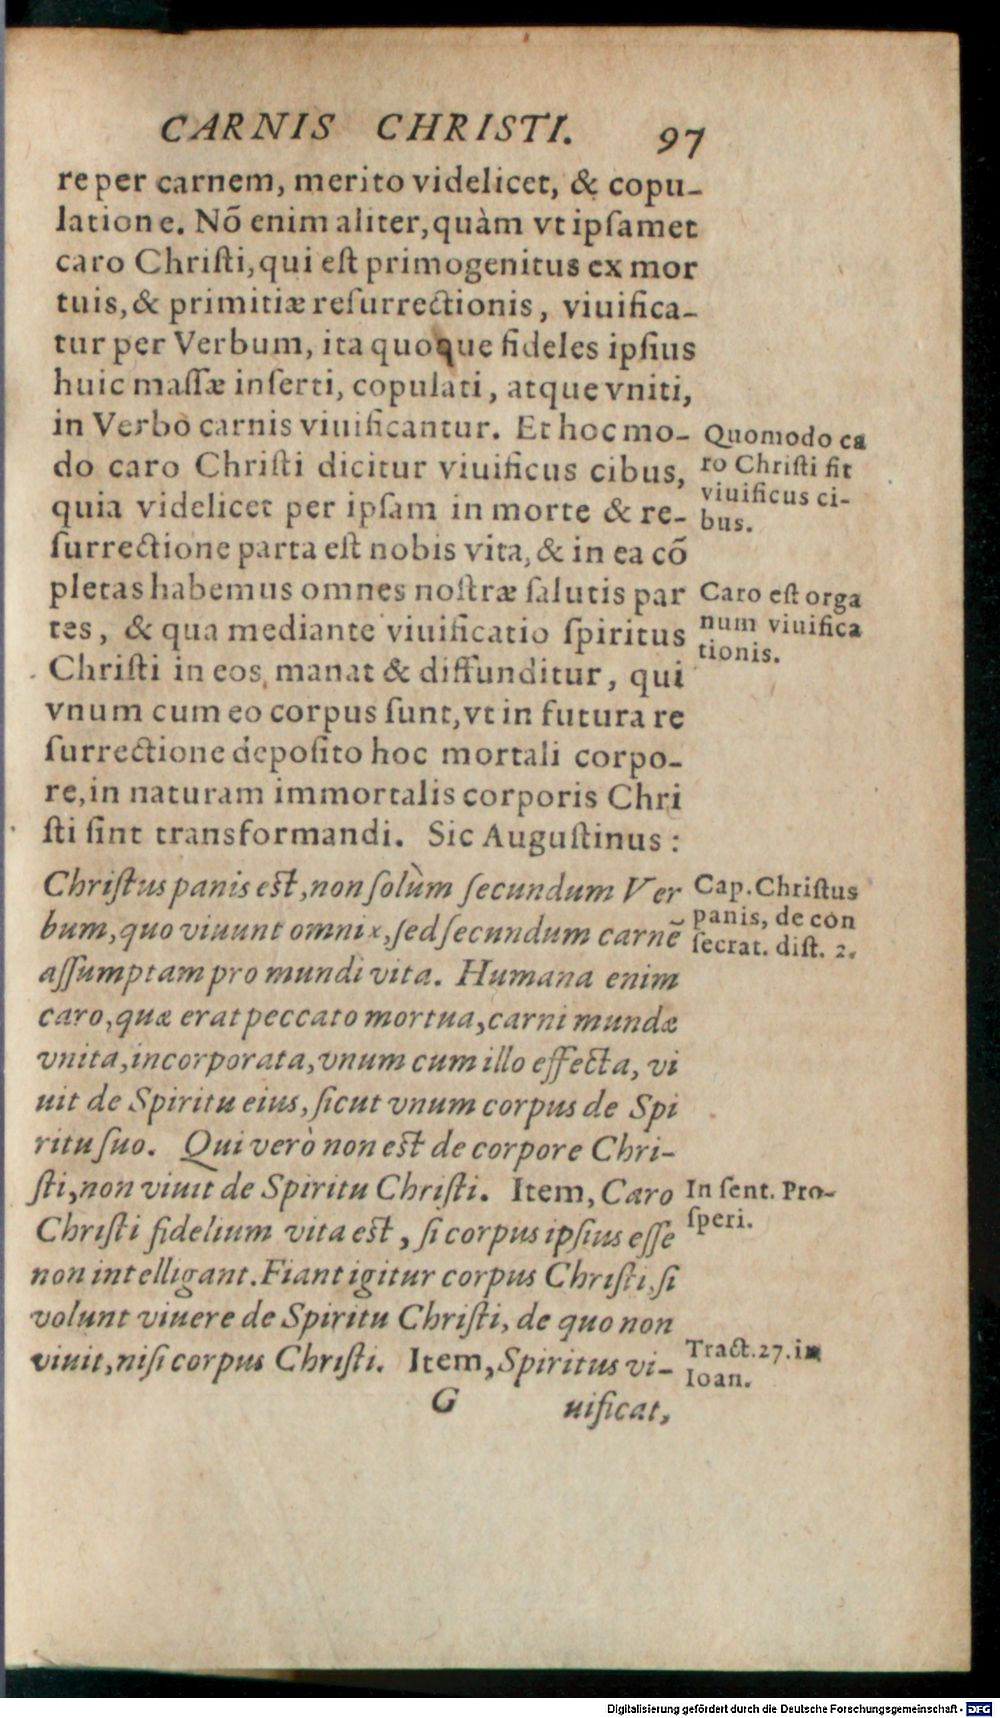 CARNIS CHRISTI. 97
re per carnem, merito videlicet, & copu-
latione. Nõ enim aliter, quàm vt ipſamet
caro Chriſti, qui eſt primogenitus ex mor
tuis, & primitiæ reſurrectionis, viuifica-
tur per Verbum, ita quoque fideles ipſius
huic maſſæ inſerti, copulati, atque vniti,
in Verbo carnis viuificantur. Et hoc mo-
do caro Chriſti dicitur viuificus cibus,
quia videlicet per ipſam in morte & re-
ſurrectione parta eſt nobis vita, & in ea cõ
pletas habemus omnes noſtræ ſalutis par
tes, & qua mediante viuificatio ſpiritus
Chriſti in eos manat & diffunditur, qui
vnum cum eo corpus ſunt, vt in futura re
ſurrectione depoſito hoc mortali corpo-
re, in naturam immortalis corporis Chri
ſti ſint transformandi. Sic Auguſtinus:
Chriſtus panis eſt, non ſolùm ſecundum Ver
bum, quo viuunt omnix, ſed ſecundum carnẽ
aſſumptam pro mundi vita. Humana enim
caro, quæ erat peccato mortua, carni mundæ
vnita, incorporata, vnum cum illo effecta, vi
uit de Spiritu eius, ſicut vnum corpus de Spi
ritu ſuo. Qui verò non eſt de corpore Chri-
ſti, non viuit de Spiritu Chriſti. Item, Caro
Chriſti fidelium vita eſt, ſi corpus ipſius eſſe
non intelligant. Fiant igitur corpus Chriſti, ſi
volunt viuere de Spiritu Chriſti, de quo non
viuit, niſi corpus Chriſti. Item, Spiritus vi-
G uificat,
Quomodo ca
ro Chriſti fit
viuificus ci-
bus.
Caro eſt orga
num viuifica
tionis.
Cap. Chriſtus
panis, de con
ſecrat. diſt. 2.
In ſent. Pro-
ſperi.
Tract. 27. in
Ioan.
Digitalisierung gefördert durch die Deutsche Forschungsgemeinschaft - DFG